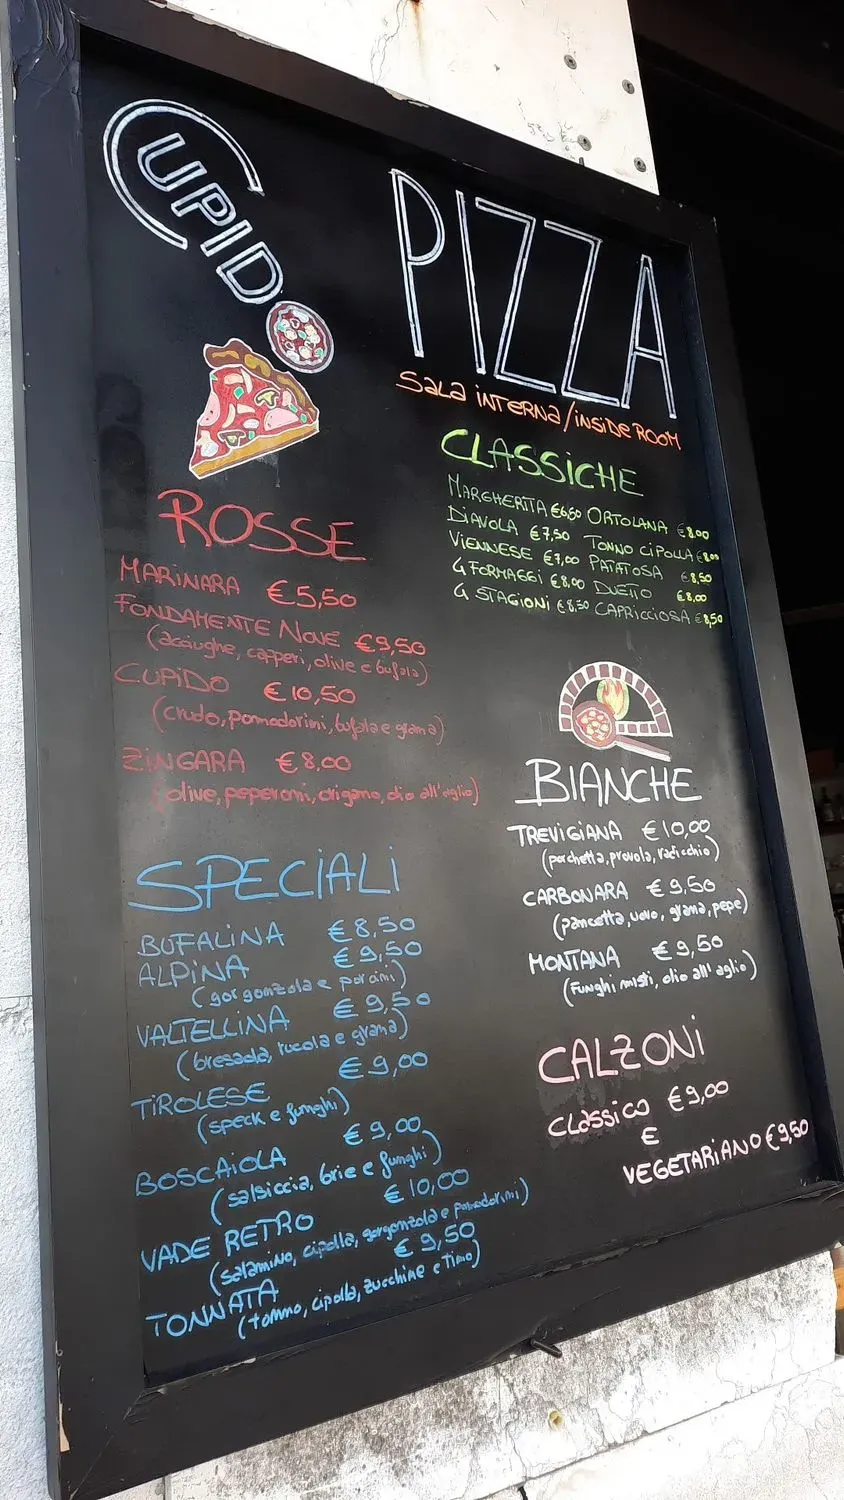 CUPIDO
PIZZA
SALA INTERNA/INSIDE ROOM
ROSSE
MARINARA €5,50
FONDAMENTE NOVE €9,50
(acciughe, capperi, olive e bufala)
CUPIDO €10,50
(crudo, pomodorini, bufala e grana)
ZINGARA €8,00
(olive, peperoni, origano, olio all'aglio)
CLASSICHE
MARGHERITA €6,50 ORTOLANA €8,00
DIAVOLA €7,50 TONNO CIPOLLA €8,00
VIENNESE €7,00 PATATOSA €8,50
4 FORMAGGI €8,00 DUETTO €8,00
4 STAGIONI €8,50 CAPRICCIOSA €8,50
BIANCHE
TREVIGIANA €10,00
(porchetta, provola, radicchio)
CARBONARA €9,50
(pancetta, uovo, grana, pepe)
MONTANA €9,50
(funghi misti, olio all'aglio)
SPECIALI
BUFALINA €8,50
ALPINA €9,50
(gorgonzola e porcini)
VALTELLINA €9,50
(bresaola, rucola e grana)
TIROLESE €9,00
(speck e funghi)
BOSCAIOLA €9,00
(salsiccia, brie e funghi)
VADE RETRO €10,00
(salamino, cipolla, gorgonzola e pomodorini)
TONNATA €9,50
(tonno, cipolla, zucchine e timo)
CALZONI
CLASSICO €9,00
E
VEGETARIANO €9,50